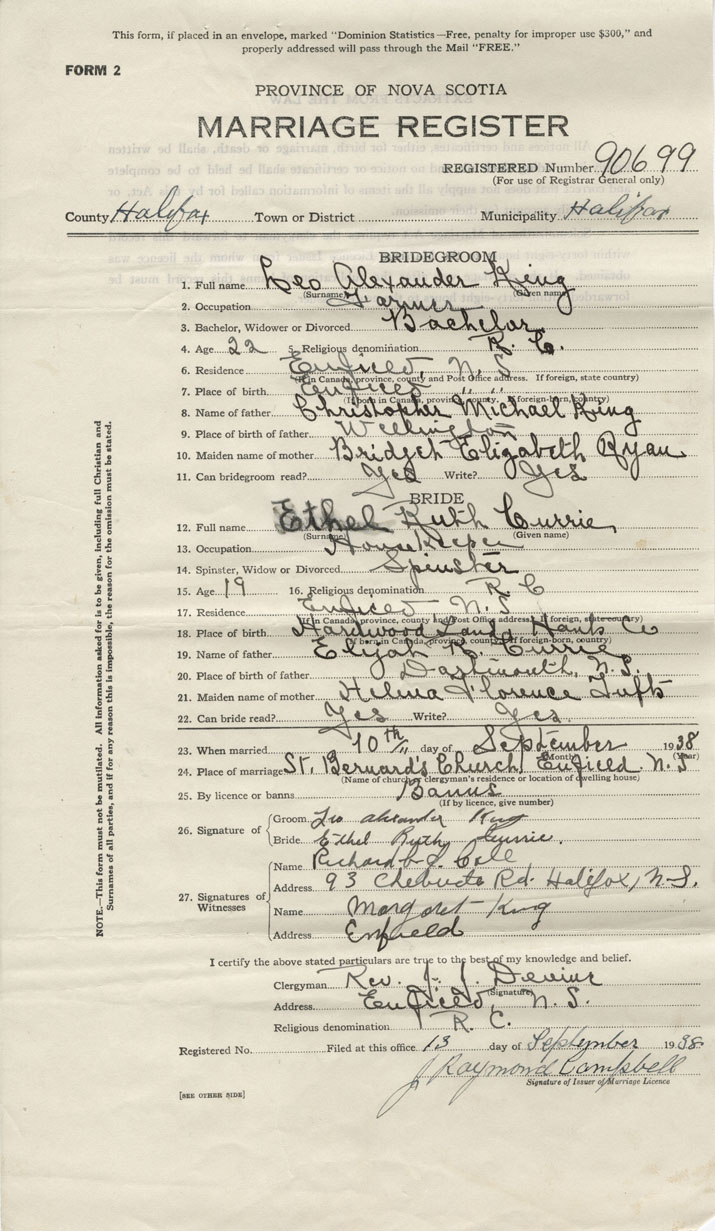 This form, if placed in an envelope, marked "Dominion Statistics—Free, penalty for improper use $300," and
properly addressed will pass through the Mail "FREE."
FORM 2
PROVINCE OF NOVA SCOTIA
MARRIAGE REGISTER
REGISTERED Number 90699
(For use of Registrar General only)
County Halifax Town or District Municipality Halifax
BRIDEGROOM
1. Full name Leo Alexander King
(Surname) (Given name)
2. Occupation Farmer
3. Bachelor, Widower or Divorced Bachelor
4. Age 22 5. Religious denomination R. C.
6. Residence Enfield, N. S
(If in Canada, province, county and Post Office address. If foreign, state country)
7. Place of birth Enfield " "
(If born in Canada, province, county, if foreign-born, country)
8. Name of father Christopher Michael King
9. Place of birth of father Wellington
10. Maiden name of mother Bridget Elizabeth Ryan
11. Can bridegroom read? Yes Write? Yes
BRIDE
12. Full name Ethel Ruth Currie
(Surname) (Given name)
13. Occupation Housekeeper
14. Spinster, Widow or Divorced Spinster
15. Age 19 16. Religious denomination R C
17. Residence Enfield N. S
(If in Canada, province, county and Post Office address. If foreign, state country)
18. Place of birth Hardwood Lands Hants Co
(If born in Canada, province, county, if foreign-born, country)
19. Name of father Elijah R. Currie
20. Place of birth of father Dartmouth, N. S.
21. Maiden name of mother Helena Florence Tufts
22. Can bride read? Yes Write? Yes.
23. When married 10th day of September 1938
(Month) (Year)
24. Place of marriage St. Bernard's Church, Enfield N. S
(Name of church, clergyman's residence or location of dwelling house)
25. By licence or banns Banns
(If by licence, give number)
26. Signature of
Groom Leo alexander King
Bride Ethel Ruth Currie.
27. Signatures of Witnesses
Name Richard Cole
Address 93 Chebucto Rd. Halifax, N.S.
Name Margaret King
Address Enfield
I certify the above stated particulars are true to the best of my knowledge and belief.
Clergyman Rev. J. J. Devine
(Signature)
Address Enfield, N. S.
Religious denomination R. C.
Registered No. Filed at this office 13 day of September 1938
J Raymond Campbell
Signature of Issuer of Marriage Licence
[SEE OTHER SIDE]
NOTE.—This form must not be mutilated. All information asked for is to be given, including full Christian and
Surnames of all parties, and if for any reason this is impossible, the reason for the omission must be stated.